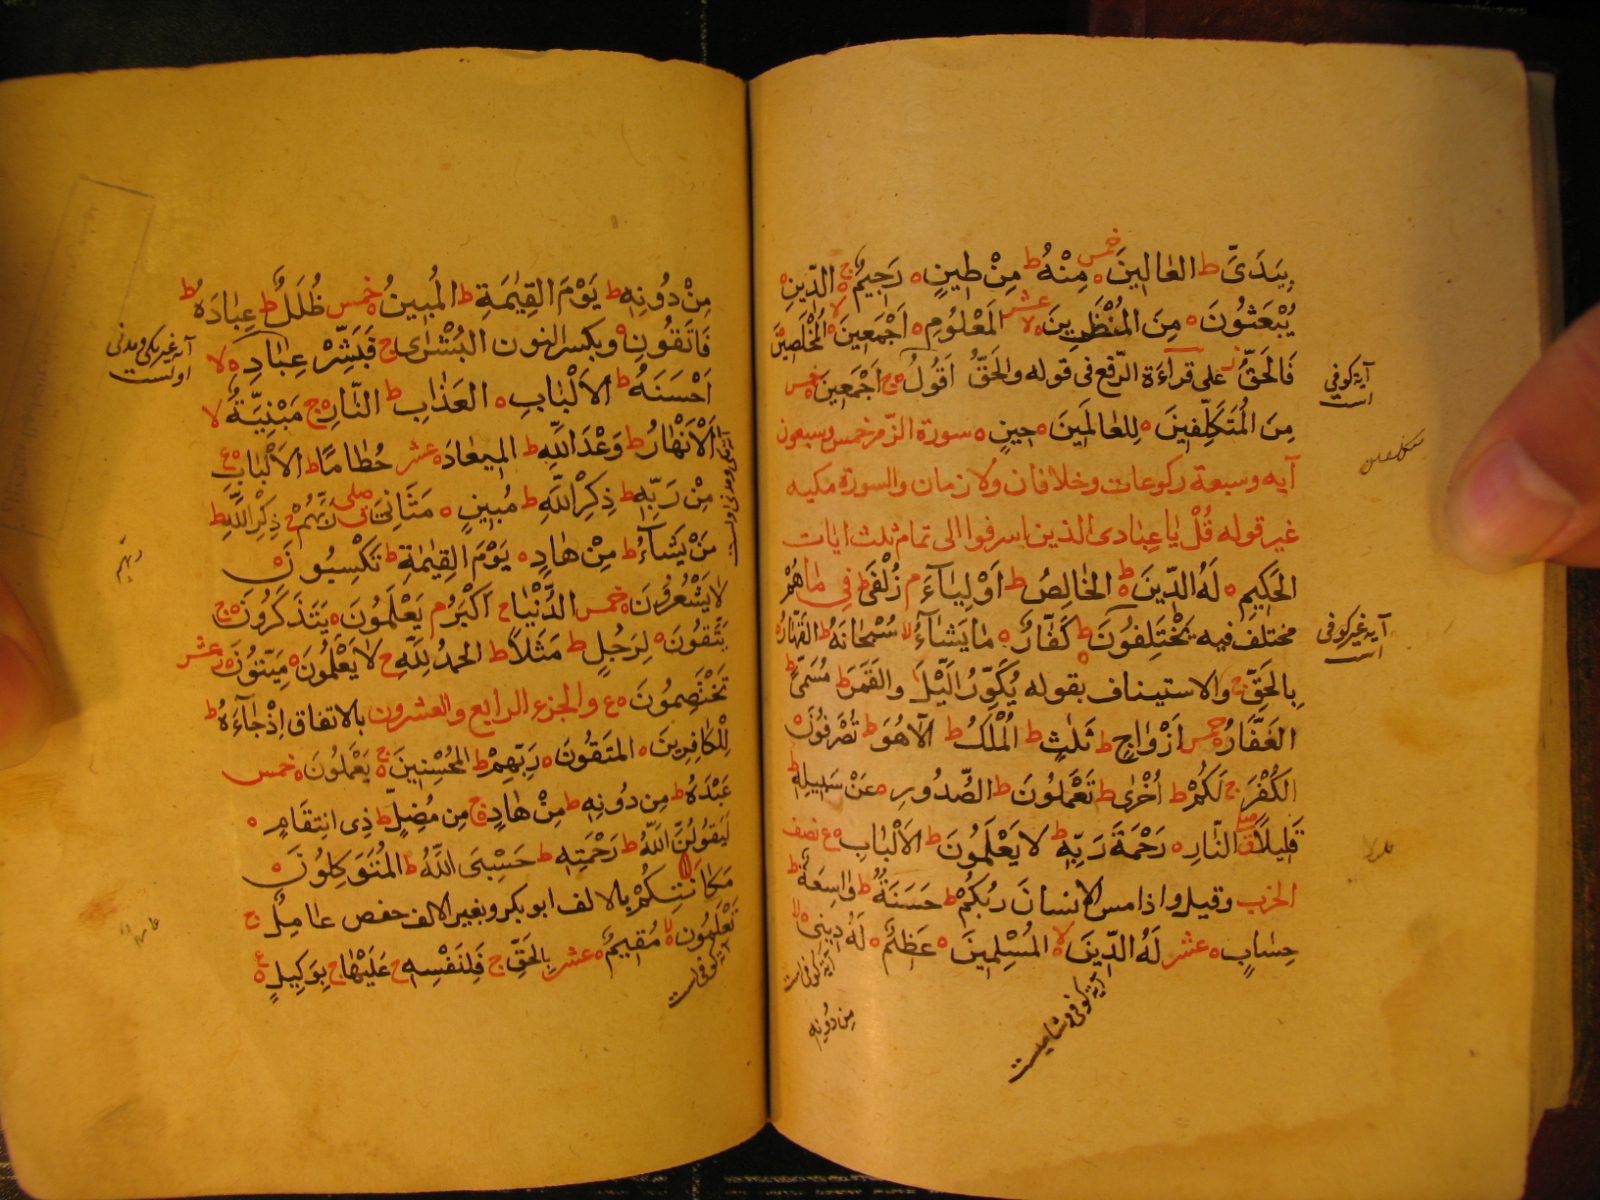 بِيَدَىَّ ط العٰالِينَ ه خمس مِنْهُ ط مِنْ طِينٍ ه رَجِيمٌ ج الدِّينِ ه
يُبْعَثُونَ ه مِنَ المُنْظَرِينَ ه لا عشر المَعْلُومِ ه اَجْمَعِينَ ه لا المُخْلَصِينَ
فَالحَقُّ ز على قراءة الرّفع فى قوله والحَقُّ اَقُولُ ه ج اَجْمَعِينَ ه خمس
آية كوفى است
مِنَ المُتَكَلِّفِينَ ه لِلعٰالَمِينَ ه حِينٍ ه سورة الزّمر خمس وسبعون
آيه وسبعة ركوعات وخلافان ولازمان والسورة مكيه
غير قوله قُلْ يٰا عِبٰادى الذين اسرفوا الى تمام ثلث ايات
الحَكِيمِ ه لَهُ الدِّينَ ط الخٰالِصُ ط اَوْلِيٰآءَ م زُلْفَى ط فِى مٰا هُمْ
مختلف فيه يَخْتَلِفُونَ ط ه كَفّٰارٌ ه مٰا يَشٰآءُ لا سُبْحٰانَهُ ط القَهّٰارُ ه
آية غير كوفى است
بِالحَقِّ ج والاستيناف بقوله يُكَوِّرُ الَّيْلَ والقَمَرَ ط مُسَمًّى ط
الغَفّٰارُ ه خمس اَزْوٰاجٍ ط ثَلٰثٍ ط المُلْكُ ط الاّ هُوَ ط تُصْرَفُونَ ه
الكُفْرَ ج لَكُمْ ط اُخْرٰى ط تَعْمَلُونَ ط الصُّدُورِ ه عَنْ سَبِيلِهِ ط
قَلِيلاً ق النّٰارِ ه رَحْمَةَ رَبِّهِ ط لا يَعْلَمُونَ ط الاَلْبٰابِ ه ع نصف
الحزب وقيل واذا مس الانسان رَبَّكُمْ ط حَسَنَةٌ ط وٰاسِعَةٌ ط
حِسٰابٍ ه عشر لَهُ الدِّينَ لا المُسْلِمِينَ ه عَظِيمٌ ه لَهُ دِينِى لا
آية كوفى است
آية كوفى وشاميست
مِن دُونِهِ
مِنْ دُونِهِ ط يَوْمَ القِيٰمَةِ ط المُبِينُ ه خمس ظُلَلٌ ط عِبٰادَهُ ط
فَاتَّقُونِ ه وبكسر النون البُشْرٰى ج فَبَشِّرْ عِبٰادِ ه لا
آية غير مكى ومدنى اولست
اَحْسَنَهُ ط الاَلْبٰابِ ه العَذٰابِ ط النّٰارِ ج مَبْنِيَّةٌ لا
الاَنْهٰارُ ط وَعْدَ اللّٰهِ ط المِيعٰادَ ه عشر حُطٰامًا ط الاَلْبٰابِ ع
مِنْ رَبِّهِ ط ذِكْرِ اللّٰهِ ط مُبِينٍ ه مَثٰانِىَ صلى رَبَّهُمْ ج ذِكْرِ اللّٰهِ ط
مَنْ يَشٰآءُ ط مِنْ هٰادٍ ه يَوْمَ القِيٰمَةِ ط تَكْسِبُونَ ه
لا يَشْعُرُونَ ه خمس الدُّنْيٰا ج اَكْبَرُ م يَعْلَمُونَ ه يَتَذَكَّرُونَ ه ج
يَتَّقُونَ ه لِرَجُلٍ ط مَثَلاً ط الحمدُ لِلّٰهِ ج لا يَعْلَمُونَ ه مَيِّتُونَ ه ز عشر
تَخْتَصِمُونَ ه ع والجزء الرابع والعشرون بالاتفاق اِذْ جٰآءَهُ ط
لِلْكٰافِرِينَ ه المُتَّقُونَ ه رَبِّهِمْ ط المُحْسِنِينَ ه ج يَعْمَلُونَ ه خمس
عَبْدَهُ ط مِن دُونِهِ ط مِنْ هٰادٍ ه ج مِن مُضِلٍّ ط ذِى انتِقَامٍ ه
لَيَقُولُنَّ اللّٰهُ ط رَحْمَتِهِ ط حَسْبِىَ اللّٰهُ ط المُتَوَكِّلُونَ ه
مَكَانَتِكُمْ بالالف ابو بكر وبغير الالف حفص عٰامِلٌ ج
تَعْلَمُونَ ه لا مُقِيمٌ ه عشر بِالحَقِّ ج فَلِنَفْسِهِ ج عَلَيْهٰا ج بِوَكِيلٍ ه ع
آية كوفى است